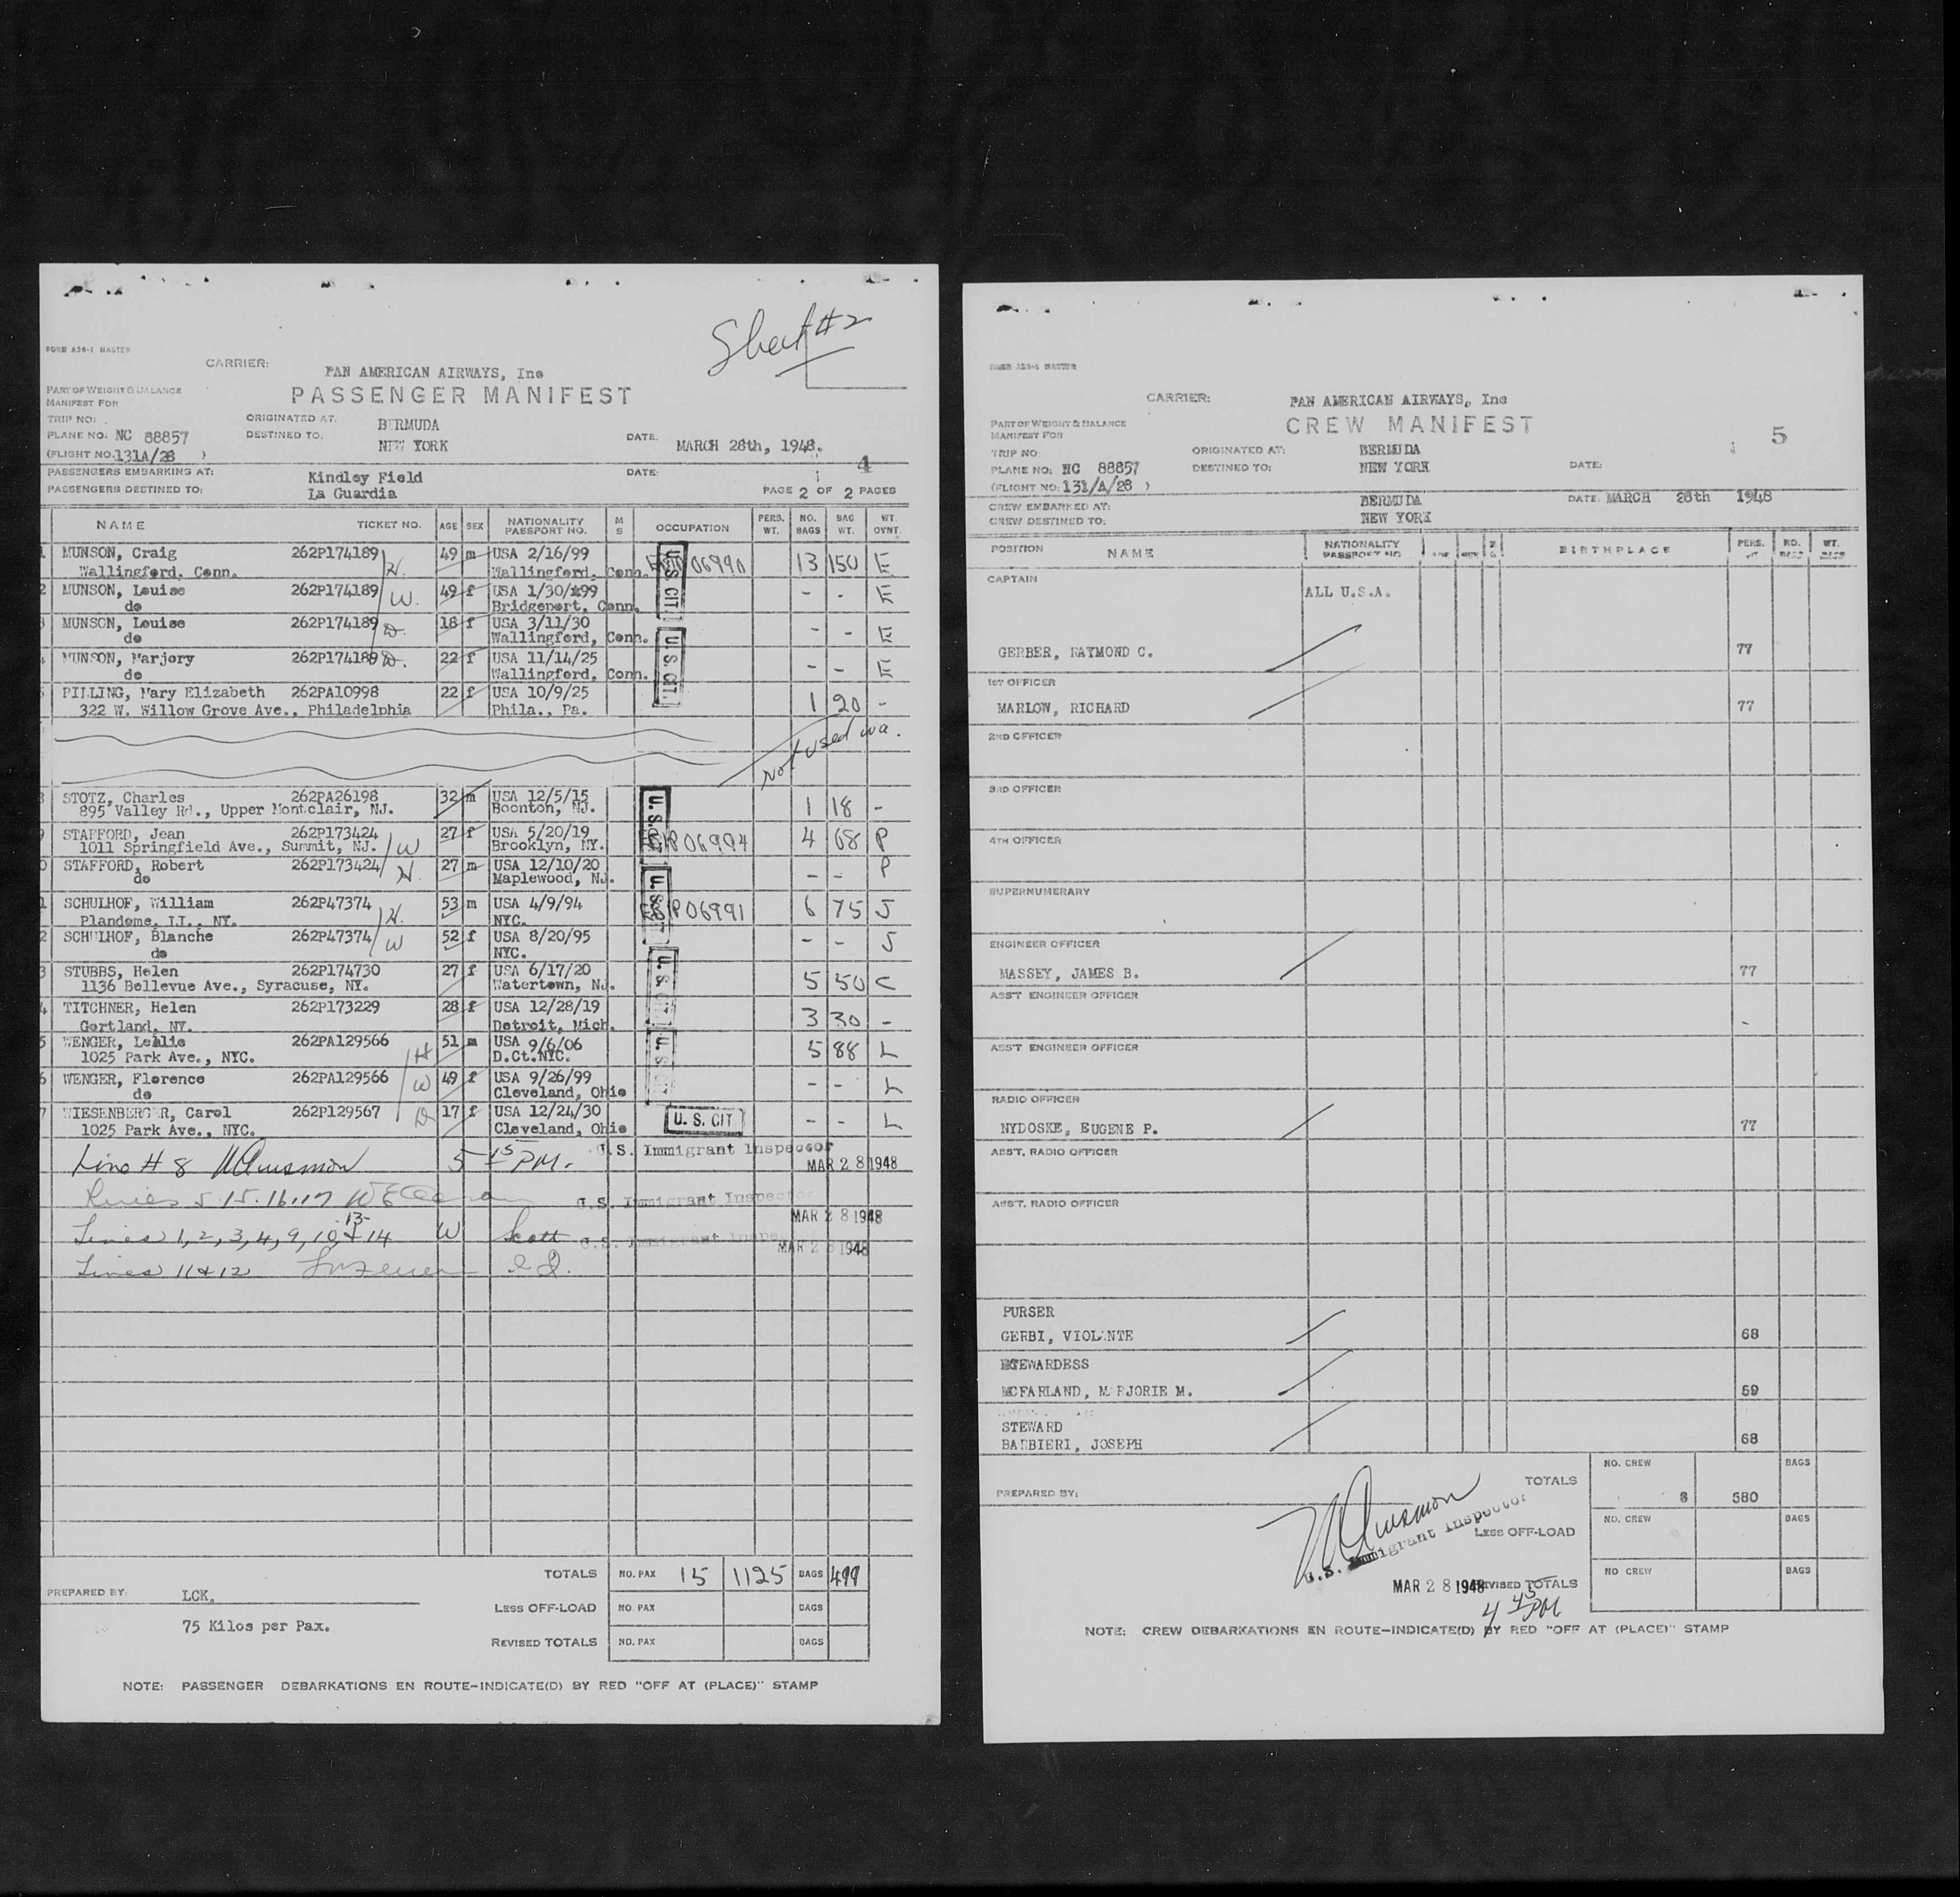 Sheet #2
FORM A36-1 MASTER
CARRIER: PAN AMERICAN AIRWAYS, Inc
PASSENGER MANIFEST
PART OF WEIGHT & BALANCE
MANIFEST FOR
TRIP NO:
ORIGINATED AT: BERMUDA
PLANE NO: NC 88857
DESTINED TO: NEW YORK
DATE: MARCH 28th, 1948.
(FLIGHT NO. 131A/28 )
4
PASSENGERS EMBARKING AT: Kindley Field
DATE:
PASSENGERS DESTINED TO: La Guardia
PAGE 2 OF 2 PAGES
NAME TICKET NO. AGE SEX NATIONALITY PASSPORT NO. M S OCCUPATION PERS. WT. NO. BAGS BAG WT. WT. OVNT.
1 MUNSON, Craig 262P174189 H. 49 m USA 2/16/99 U.S. CIT. 06990 13 150 E
Wallingford, Conn. Wallingford, Conn.
2 MUNSON, Louise 262P174189 W. 49 f USA 1/30/99 - - E
do Bridgeport, Conn.
3 MUNSON, Louise 262P174189 D. 18 f USA 3/11/30 - - E
do Wallingford, Conn.
4 MUNSON, Marjory 262P174189 D. 22 f USA 11/14/25 U.S. CIT. - - E
do Wallingford, Conn.
5 PILLING, Mary Elizabeth 262PA10998 22 f USA 10/9/25 1 20 -
322 W. Willow Grove Ave., Philadelphia Phila., Pa.
Not used wa.
8 STOTZ, Charles 262PA26198 32 m USA 12/5/15 1 18 -
895 Valley Rd., Upper Montclair, NJ. Boonton, NJ.
9 STAFFORD, Jean 262P173424 W 27 f USA 5/20/19 P06994 4 68 P
1011 Springfield Ave., Summit, NJ. Brooklyn, NY.
0 STAFFORD, Robert 262P173424 H. 27 m USA 12/10/20 - - P
do Maplewood, NJ.
1 SCHULHOF, William 262P47374 H. 53 m USA 4/9/94 P06991 6 75 J
Plandome, LI., NY. NYC.
2 SCHULHOF, Blanche 262P47374 W 52 f USA 8/20/95 - - J
do NYC.
3 STUBBS, Helen 262P174730 27 f USA 6/17/20 5 50 C
1136 Bellevue Ave., Syracuse, NY. Watertown, NJ.
4 TITCHNER, Helen 262P173229 28 f USA 12/28/19 3 30 -
Cortland, NY. Detroit, Mich.
5 WENGER, Leslie 262PA129566 H 51 m USA 9/6/06 5 88 L
1025 Park Ave., NYC. D.Ct.NYC.
6 WENGER, Florence 262PA129566 W 49 f USA 9/26/99 - - L
do Cleveland, Ohio
7 WIESENBERGER, Carol 262P129567 D 17 f USA 12/24/30 U. S. CIT - - L
1025 Park Ave., NYC. Cleveland, Ohio
Line # 8 5 15 PM. U.S. Immigrant Inspector MAR 28 1948
Lines 5.15.16.17 U.S. Immigrant Inspector MAR 28 1948
Lines 1, 2, 3, 4, 9, 10, 13 & 14 W Scott U.S. Immigrant Inspector MAR 28 1948
Lines 11 & 12
TOTALS NO. PAX 15 1125 BAGS 499
PREPARED BY: LCK.
LESS OFF-LOAD NO. PAX BAGS
75 Kilos per Pax.
REVISED TOTALS NO. PAX BAGS
NOTE: PASSENGER DEBARKATIONS EN ROUTE-INDICATE(D) BY RED "OFF AT (PLACE)" STAMP
CARRIER: PAN AMERICAN AIRWAYS, Inc
CREW MANIFEST
5
PART OF WEIGHT & BALANCE
MANIFEST FOR
TRIP NO:
ORIGINATED AT: BERMUDA
PLANE NO: NC 88857
DESTINED TO: NEW YORK
DATE:
(FLIGHT NO: 131/A/28 )
CREW EMBARKED AT: BERMUDA
DATE: MARCH 28th 1948
CREW DESTINED TO: NEW YORK
POSITION NAME NATIONALITY PASSPORT NO. BIRTHPLACE PERS. WT NO. BAGS WT. BAGS
CAPTAIN
ALL U.S.A.
GERBER, RAYMOND C. 77
1ST OFFICER
MARLOW, RICHARD 77
2ND OFFICER
3RD OFFICER
4TH OFFICER
SUPERNUMERARY
ENGINEER OFFICER
MASSEY, JAMES B. 77
ASS'T ENGINEER OFFICER
ASS'T ENGINEER OFFICER
RADIO OFFICER
NYDOSKE, EUGENE P. 77
ASST. RADIO OFFICER
ASST. RADIO OFFICER
PURSER
GERBI, VIOLANTE 68
STEWARDESS
MCFARLAND, MARJORIE M. 59
STEWARD
BARBIERI, JOSEPH 68
PREPARED BY:
TOTALS NO. CREW 8 580 BAGS
U.S. Immigrant Inspector
LESS OFF-LOAD NO. CREW BAGS
MAR 28 1948
REVISED TOTALS NO CREW BAGS
4 45 PM
NOTE: CREW DEBARKATIONS EN ROUTE-INDICATE(D) BY RED "OFF AT (PLACE)" STAMP